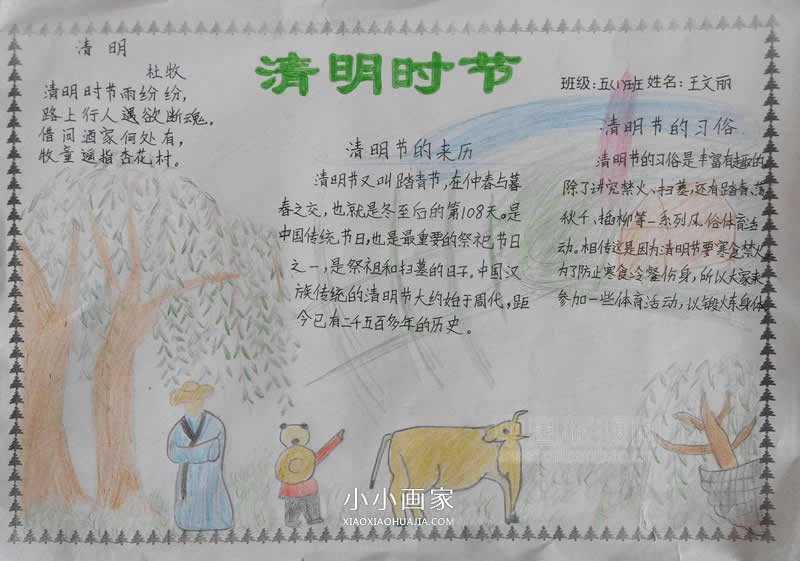 清明时节
清明
杜牧
清明时节雨纷纷,
路上行人遇欲断魂。
借问酒家何处有,
牧童遥指杏花村。
班级:五(1)班 姓名:王文丽
清明节的来历
清明节又叫踏青节,在仲春与暮
春之交,也就是冬至后的第108天。是
中国传统节日,也是最重要的祭祀节日
之一,是祭祖和扫墓的日子。中国汉
族传统的清明节大约始于周代,距
今已有二千五百多年的历史。
清明节的习俗
清明节的习俗是丰富有趣的
除了讲究禁火、扫墓,还有踏青、荡
秋千、插柳等一系列风俗体育活
动。相传这是因为清明节要寒食禁火
为了防止寒食冷餐伤身,所以大家来
参加一些体育活动,以锻炼身体
小小画家
XIAOXIAOHUAJIA.COM